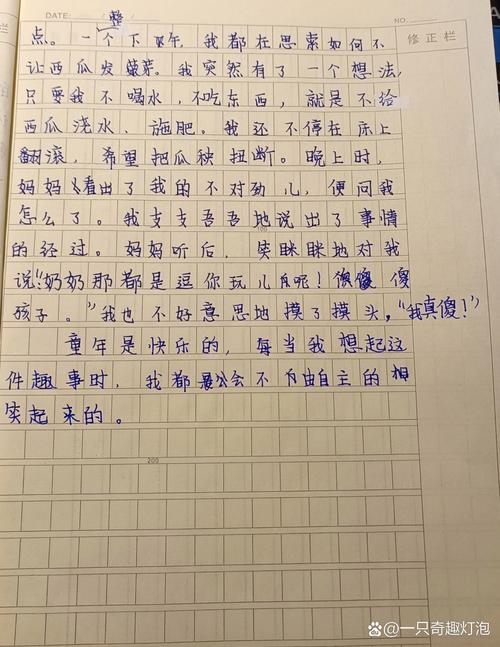 DATE:
NO.
修正栏
整
点。一个下午，我都在思索如何不
让西瓜发芽。我突然有了一个想法，
只要我不喝水，不吃东西，就是不给
西瓜浇水、施肥。我还不停在床上
翻滚，希望把瓜秧扭断。晚上时，
妈妈看出了我的不对劲儿，便问我
怎么了。我支支吾吾地说出了事情
的经过。妈妈听后，笑眯眯地对我
说：“奶奶那都是逗你玩儿呢！傻傻
孩子。”我也不好意思地摸了摸头，“我真傻！”
童年是快乐的，每当我想起这
件趣事时，我都会不由自主的
笑起来的。
200
一只奇趣灯泡